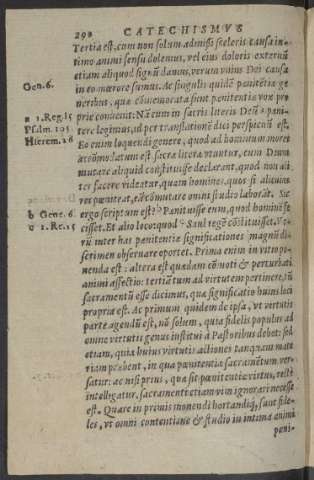 290 CATECHISMVS
Tertia est, cum non solum admissi sceleris causa in-
timo animi sensu dolemus, vel eius doloris externũ
etiam aliquod signũ damus, verum vnius Dei causa
Gen. 6. in eo mœrore sumus. Ac singulis quidẽ pœnitẽtiæ ge-
neribus, quæ cõmemorata sunt pœnitentiæ vox pro
a 1. Reg. 15 priè conuenit: Nã cum in sacris literis Deũ a pœni-
Psalm. 105 tere legimus, id per translationẽ dici perspicuũ est.
Hierem. 26 Eo enim loquendi genere, quod ad hominum mores
accõmodatum est sacræ literæ vtuntur, cum Deum
mutare aliquid constituisse declarant, quod non ali-
ter facere videatur, quam homines, quos si alicuius
rei pœniteat, eã cõmutare omni studio laborãt. Sic
b Gene. 6 ergo scriptum est: b Pœnituisse eum, quod hominẽ fe
c 1. Re. 15 cisset. Et alio loco: quod c Saul regẽ cõstituisset. Ve-
rũ inter has pœnitentiæ significationes magnũ di-
scrimen obseruare oportet. Prima enim in vitio po-
nenda est: altera est quædam cõmoti & perturbati
animi affectio: tertiã tum ad virtutem pertinere, tũ
sacramentũ esse dicimus, quæ significatio huius loci
propria est. Ac primum quidem de ipsa, vt virtutis
parte agendũ est, nõ solum, quia fidelis populus ad
omne virtutis genus institui à Pastoribus debet: sed
etiam, quia huius virtutis actiones tanquam mate
riam præbent, in qua pœnitentiæ sacramẽtum ver-
satur: ac nisi prius, quæ sit pœnitentiæ virtus, rectè
intelligatur, sacramenti etiam vim ignorari necesse
est. Quare in primis monendi hortandiq́; sunt fide-
les, vt omni contentione & studio in intima animi
pœni-